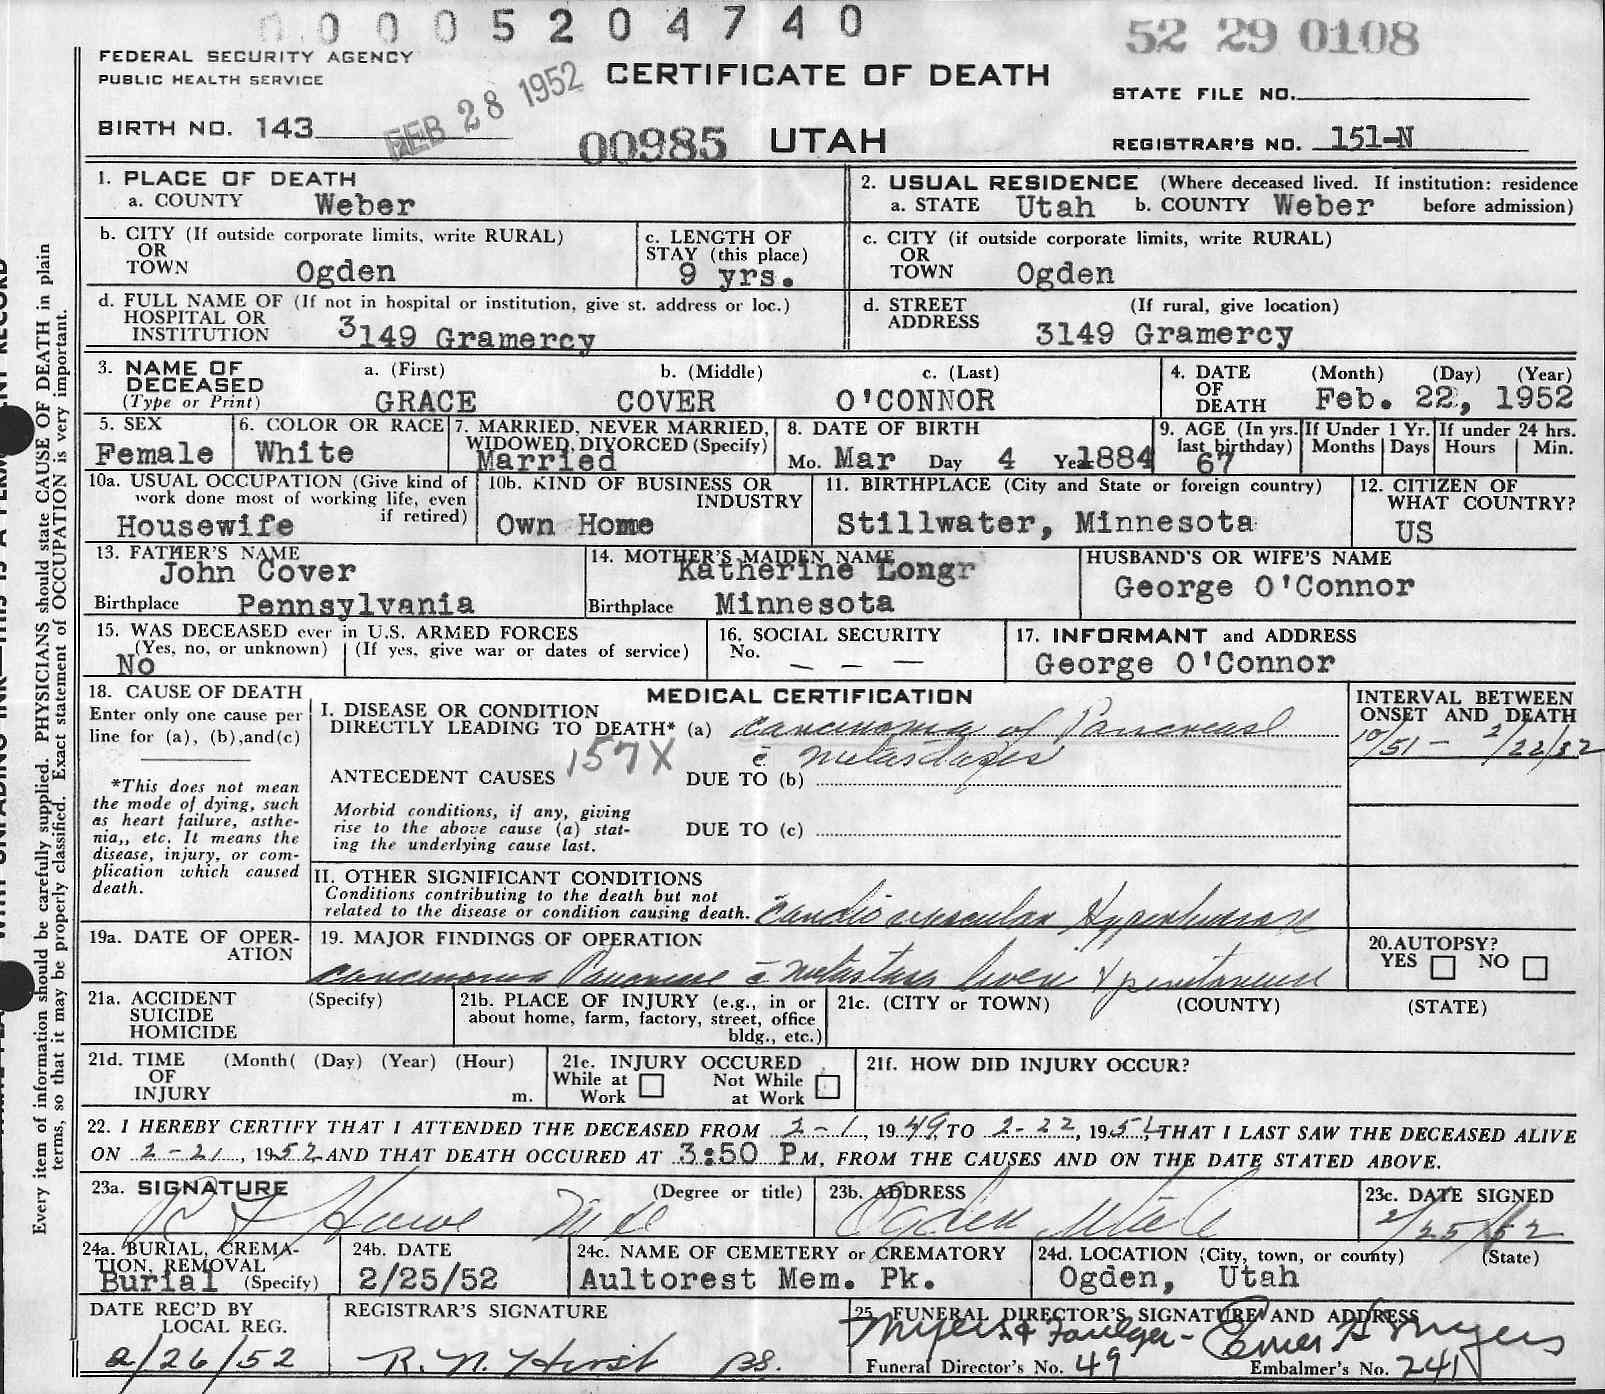 0 0 0 5 2 0 4 7 4 0
52 29 0108
FEDERAL SECURITY AGENCY
PUBLIC HEALTH SERVICE
CERTIFICATE OF DEATH
STATE FILE NO.
BIRTH NO. 143
FEB 28 1952
00985 UTAH
REGISTRAR'S NO. 151-N
1. PLACE OF DEATH
a. COUNTY Weber
2. USUAL RESIDENCE (Where deceased lived. If institution: residence
a. STATE Utah b. COUNTY Weber before admission)
b. CITY (If outside corporate limits, write RURAL)
OR
TOWN Ogden
c. LENGTH OF
STAY (this place)
9 yrs.
c. CITY (if outside corporate limits, write RURAL)
OR
TOWN Ogden
d. FULL NAME OF (If not in hospital or institution, give st. address or loc.)
HOSPITAL OR
INSTITUTION 3149 Gramercy
d. STREET (If rural, give location)
ADDRESS 3149 Gramercy
3. NAME OF DECEASED
(Type or Print)
a. (First) b. (Middle) c. (Last)
GRACE COVER O'CONNOR
4. DATE OF DEATH
(Month) (Day) (Year)
Feb. 22, 1952
5. SEX
Female
6. COLOR OR RACE
White
7. MARRIED, NEVER MARRIED,
WIDOWED, DIVORCED (Specify)
Married
8. DATE OF BIRTH
Mo. Mar Day 4 Year 1884
9. AGE (In yrs.
last birthday)
67
If Under 1 Yr.
Months Days
If under 24 hrs.
Hours Min.
10a. USUAL OCCUPATION (Give kind of
work done most of working life, even
if retired)
Housewife
10b. KIND OF BUSINESS OR
INDUSTRY
Own Home
11. BIRTHPLACE (City and State or foreign country)
Stillwater, Minnesota
12. CITIZEN OF
WHAT COUNTRY?
US
13. FATHER'S NAME
John Cover
Birthplace Pennsylvania
14. MOTHER'S MAIDEN NAME
Katherine Longr
Birthplace Minnesota
HUSBAND'S OR WIFE'S NAME
George O'Connor
15. WAS DECEASED ever in U.S. ARMED FORCES
(Yes, no, or unknown) (If yes, give war or dates of service)
No
16. SOCIAL SECURITY
No. - - -
17. INFORMANT and ADDRESS
George O'Connor
18. CAUSE OF DEATH
Enter only one cause per
line for (a), (b),and(c)
*This does not mean
the mode of dying, such
as heart failure, asthe-
nia,, etc. It means the
disease, injury, or com-
plication which caused
death.
MEDICAL CERTIFICATION
I. DISEASE OR CONDITION
DIRECTLY LEADING TO DEATH* (a) carcinoma of Pancreas
c̄ metastases
157X
ANTECEDENT CAUSES DUE TO (b)
Morbid conditions, if any, giving
rise to the above cause (a) stat-
ing the underlying cause last.
DUE TO (c)
INTERVAL BETWEEN
ONSET AND DEATH
10/51 - 2/22/52
II. OTHER SIGNIFICANT CONDITIONS
Conditions contributing to the death but not
related to the disease or condition causing death. Cardio vascular Hypertension
19a. DATE OF OPER-
ATION
19. MAJOR FINDINGS OF OPERATION
carcinoma Pancreas c̄ metastases liver & peritoneum
20.AUTOPSY?
YES NO
21a. ACCIDENT (Specify)
SUICIDE
HOMICIDE
21b. PLACE OF INJURY (e.g., in or
about home, farm, factory, street, office
bldg., etc.)
21c. (CITY or TOWN) (COUNTY) (STATE)
21d. TIME (Month( (Day) (Year) (Hour)
OF
INJURY m.
21e. INJURY OCCURED
While at Work
Not While at Work
21f. HOW DID INJURY OCCUR?
22. I HEREBY CERTIFY THAT I ATTENDED THE DECEASED FROM 2-1, 1949, TO 2-22, 1952, THAT I LAST SAW THE DECEASED ALIVE
ON 2-21, 1952 AND THAT DEATH OCCURED AT 3:50 P M, FROM THE CAUSES AND ON THE DATE STATED ABOVE.
23a. SIGNATURE (Degree or title)
Howe M.D.
23b. ADDRESS
Ogden Utah
23c. DATE SIGNED
2/25/52
24a. BURIAL, CREMA-
TION, REMOVAL
Burial (Specify)
24b. DATE
2/25/52
24c. NAME OF CEMETERY or CREMATORY
Aultorest Mem. Pk.
24d. LOCATION (City, town, or county) (State)
Ogden, Utah
DATE REC'D BY
LOCAL REG.
2/26/52
REGISTRAR'S SIGNATURE
R. N. Hirst
25. FUNERAL DIRECTOR'S SIGNATURE AND ADDRESS
Myers & Foulger - Elmer H Myers
Funeral Director's No. 49 Embalmer's No. 241
Every item of information should be carefully supplied. PHYSICIANS should state CAUSE OF DEATH in plain
terms, so that it may be properly classified. Exact statement of OCCUPATION is very important.